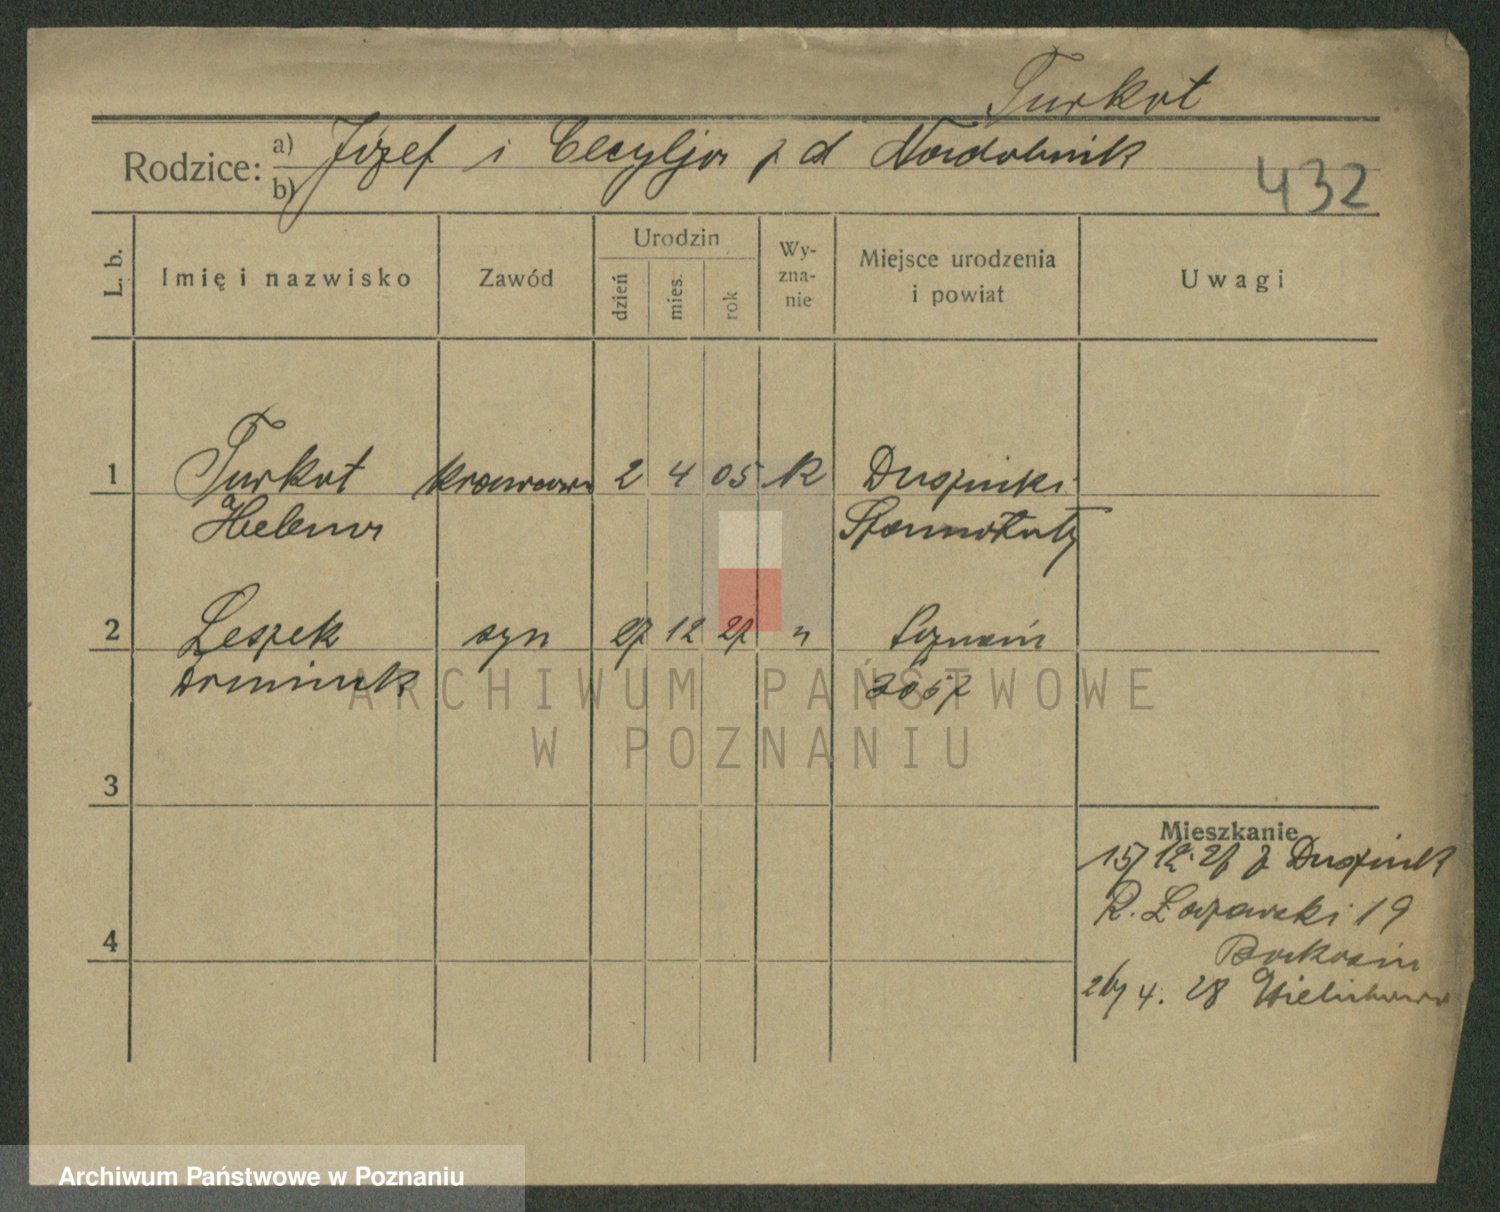 Turkot
Rodzice: a) Józef i Cecylja z d Nadolnik
b)
432
L. b.
Imię i nazwisko
Zawód
Urodzin
dzień
mies.
rok
Wy-
zna-
nie
Miejsce urodzenia
i powiat
Uwagi
1
Turkot krawcowa 2 4 05 k Duszniki
Helena Szamotuły
2
Leszek syn 27 12 27 " Poznań
Dominik
3
Mieszkanie
15/12.27 z Dusznik
R. Łazarski 19
4
26/4. 28 Wielichowo
ARCHIWUM PAŃSTWOWE
W POZNANIU
Archiwum Państwowe w Poznaniu